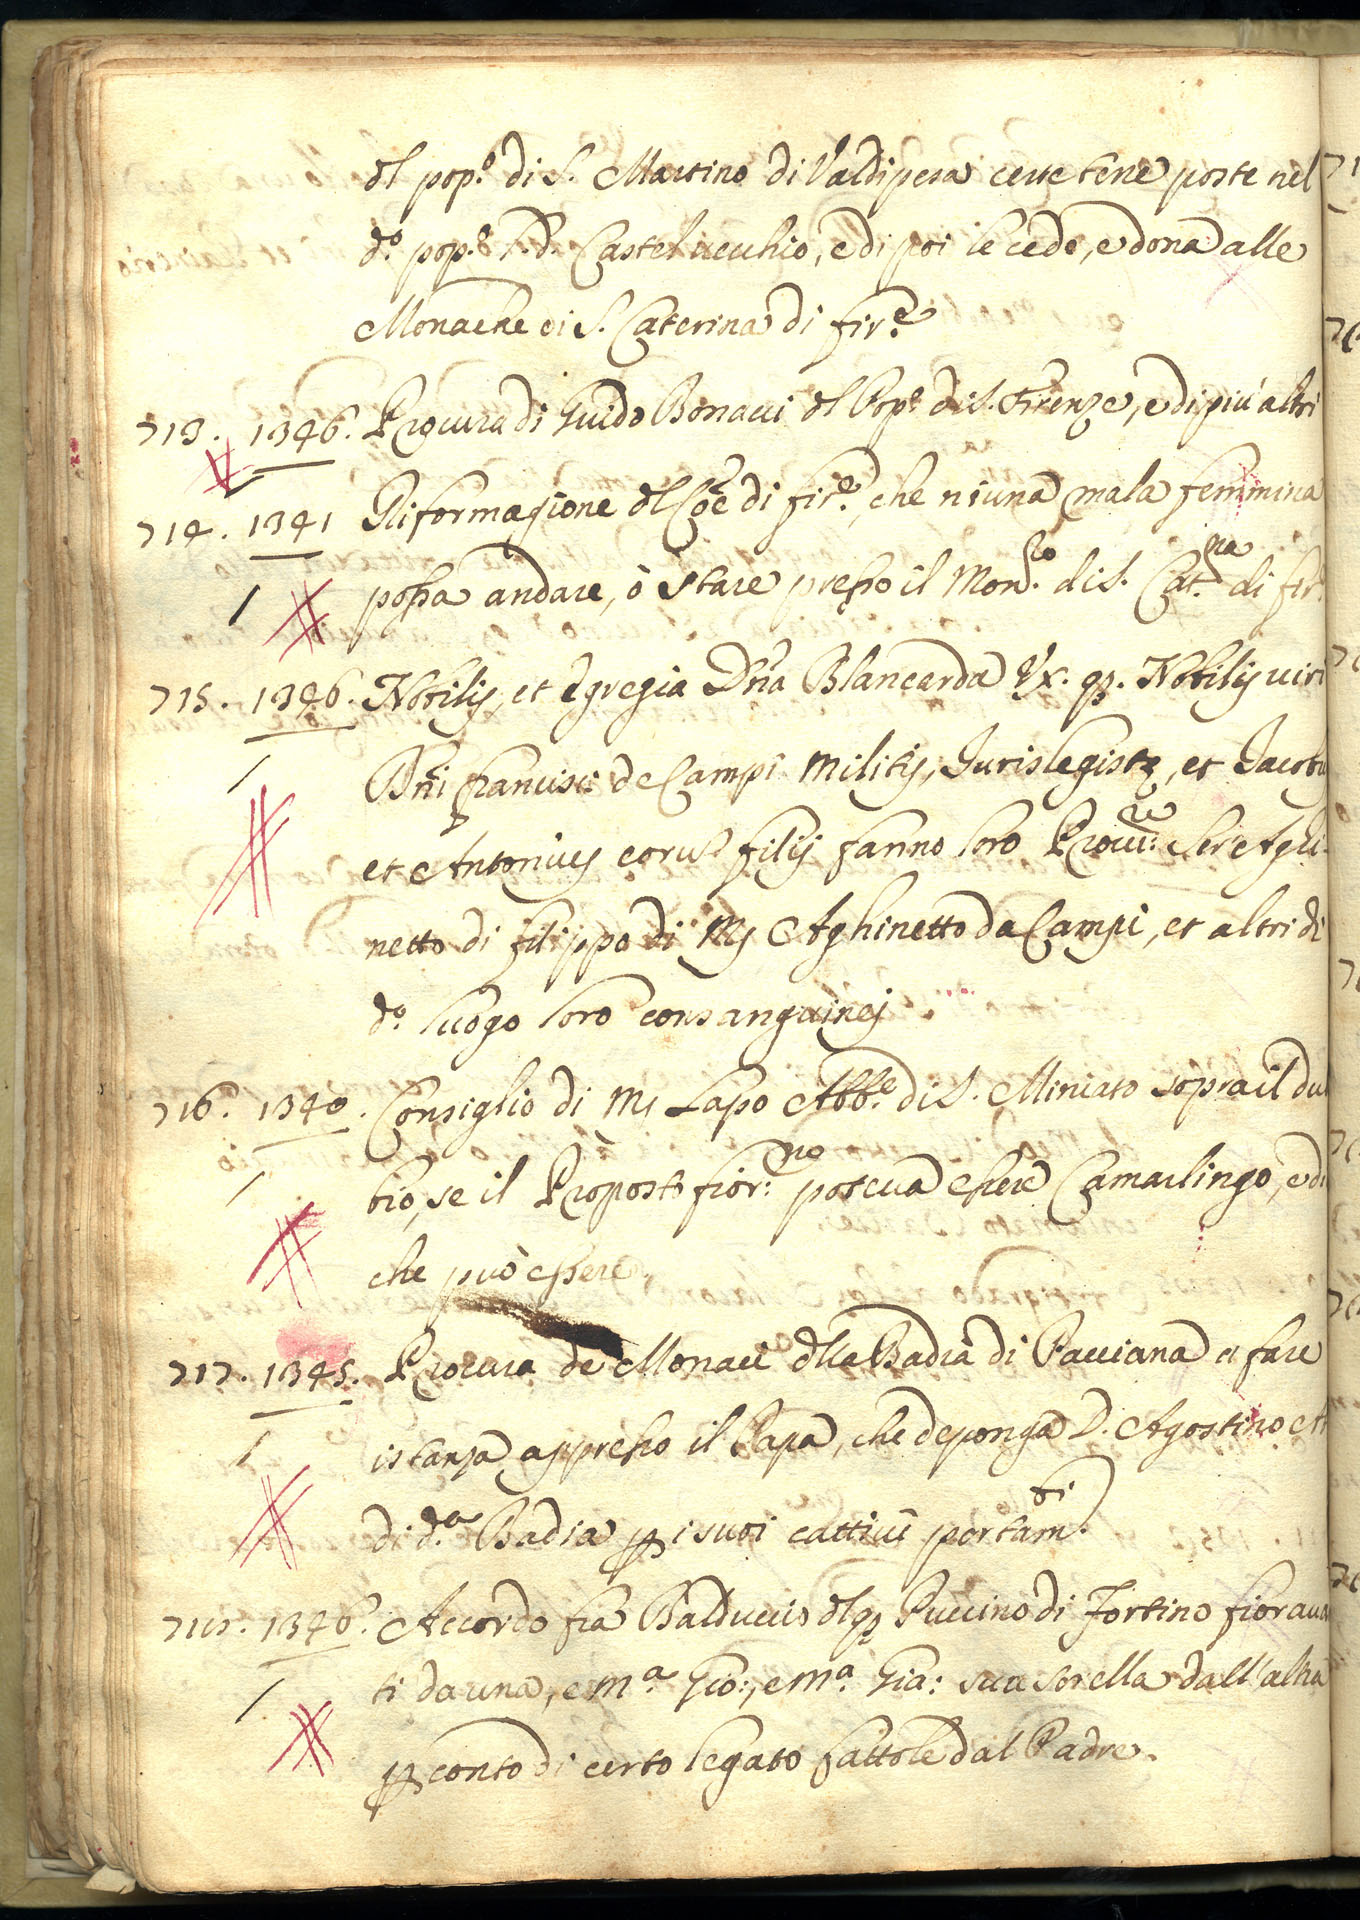 dl pop.º di S. Martino di Valdipesa certe terre poste nel
dº. pop.º l.d. Castelvecchio, e di poi le cede, e dona alle
Monache di S. Caterina di fir.e
713. 1346. Procura di Guido Bonacci dl Pop.º di S. Firenze, e di più altri
714. 1341 Riformagione dl Coe di fir.e, che niuna mala femmina
possa andare, ò stare presso il Mon.ro di S. Cat.na di fir.
715. 1346. Nobilis, et Egregia Dna Blancarda Ux. qz. Nobilis viri
Dni francisci de Campi Militis, Jurislegiste, et Jacobu
et Antonius eoru filij fanno loro Procu:re Ser Aghi
netto di filippo di Ms Aghinetto da Campi, et altri di
dº. luogo loro consanguinej
716. 1340. Consiglio di Ms Lapo Abb.e di S. Miniato sopra il du
bio, se il Proposto fior:no poteva essere Camarlingo, e di
che può essere.
717. 1345. Procura de Monaci dlla Badia di Pacciana a fare
istanza appresso il Papa, che deponga D. Agostino
di d.a Badia p i suoi cattivi portam.ti
718. 1340. Accordo fra Balduccio dl qz Puccino di Fortino fiorava
ti da una, e m.a Gio:, e m.a Gia: sua sorella dall'altra
p conto di certo legato fattole dal Padre.